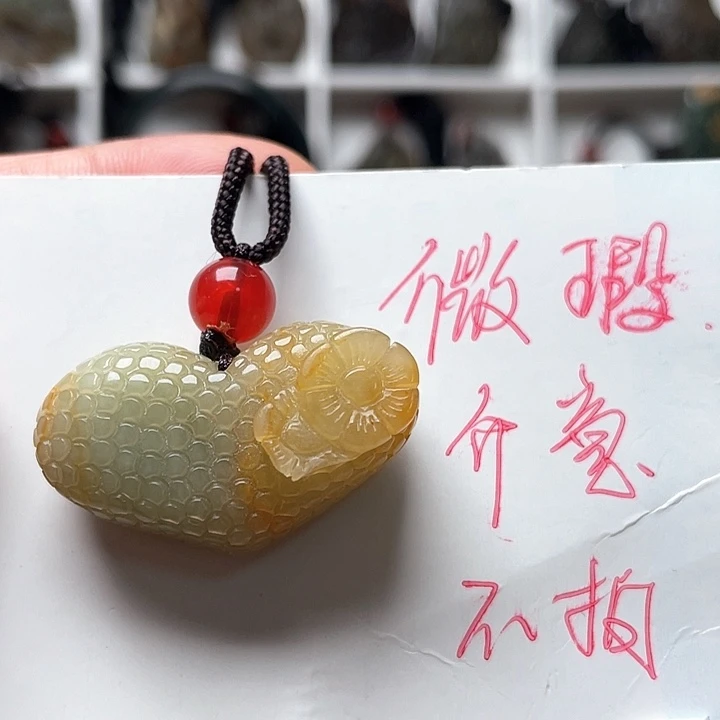 微瑕
介意
不拍